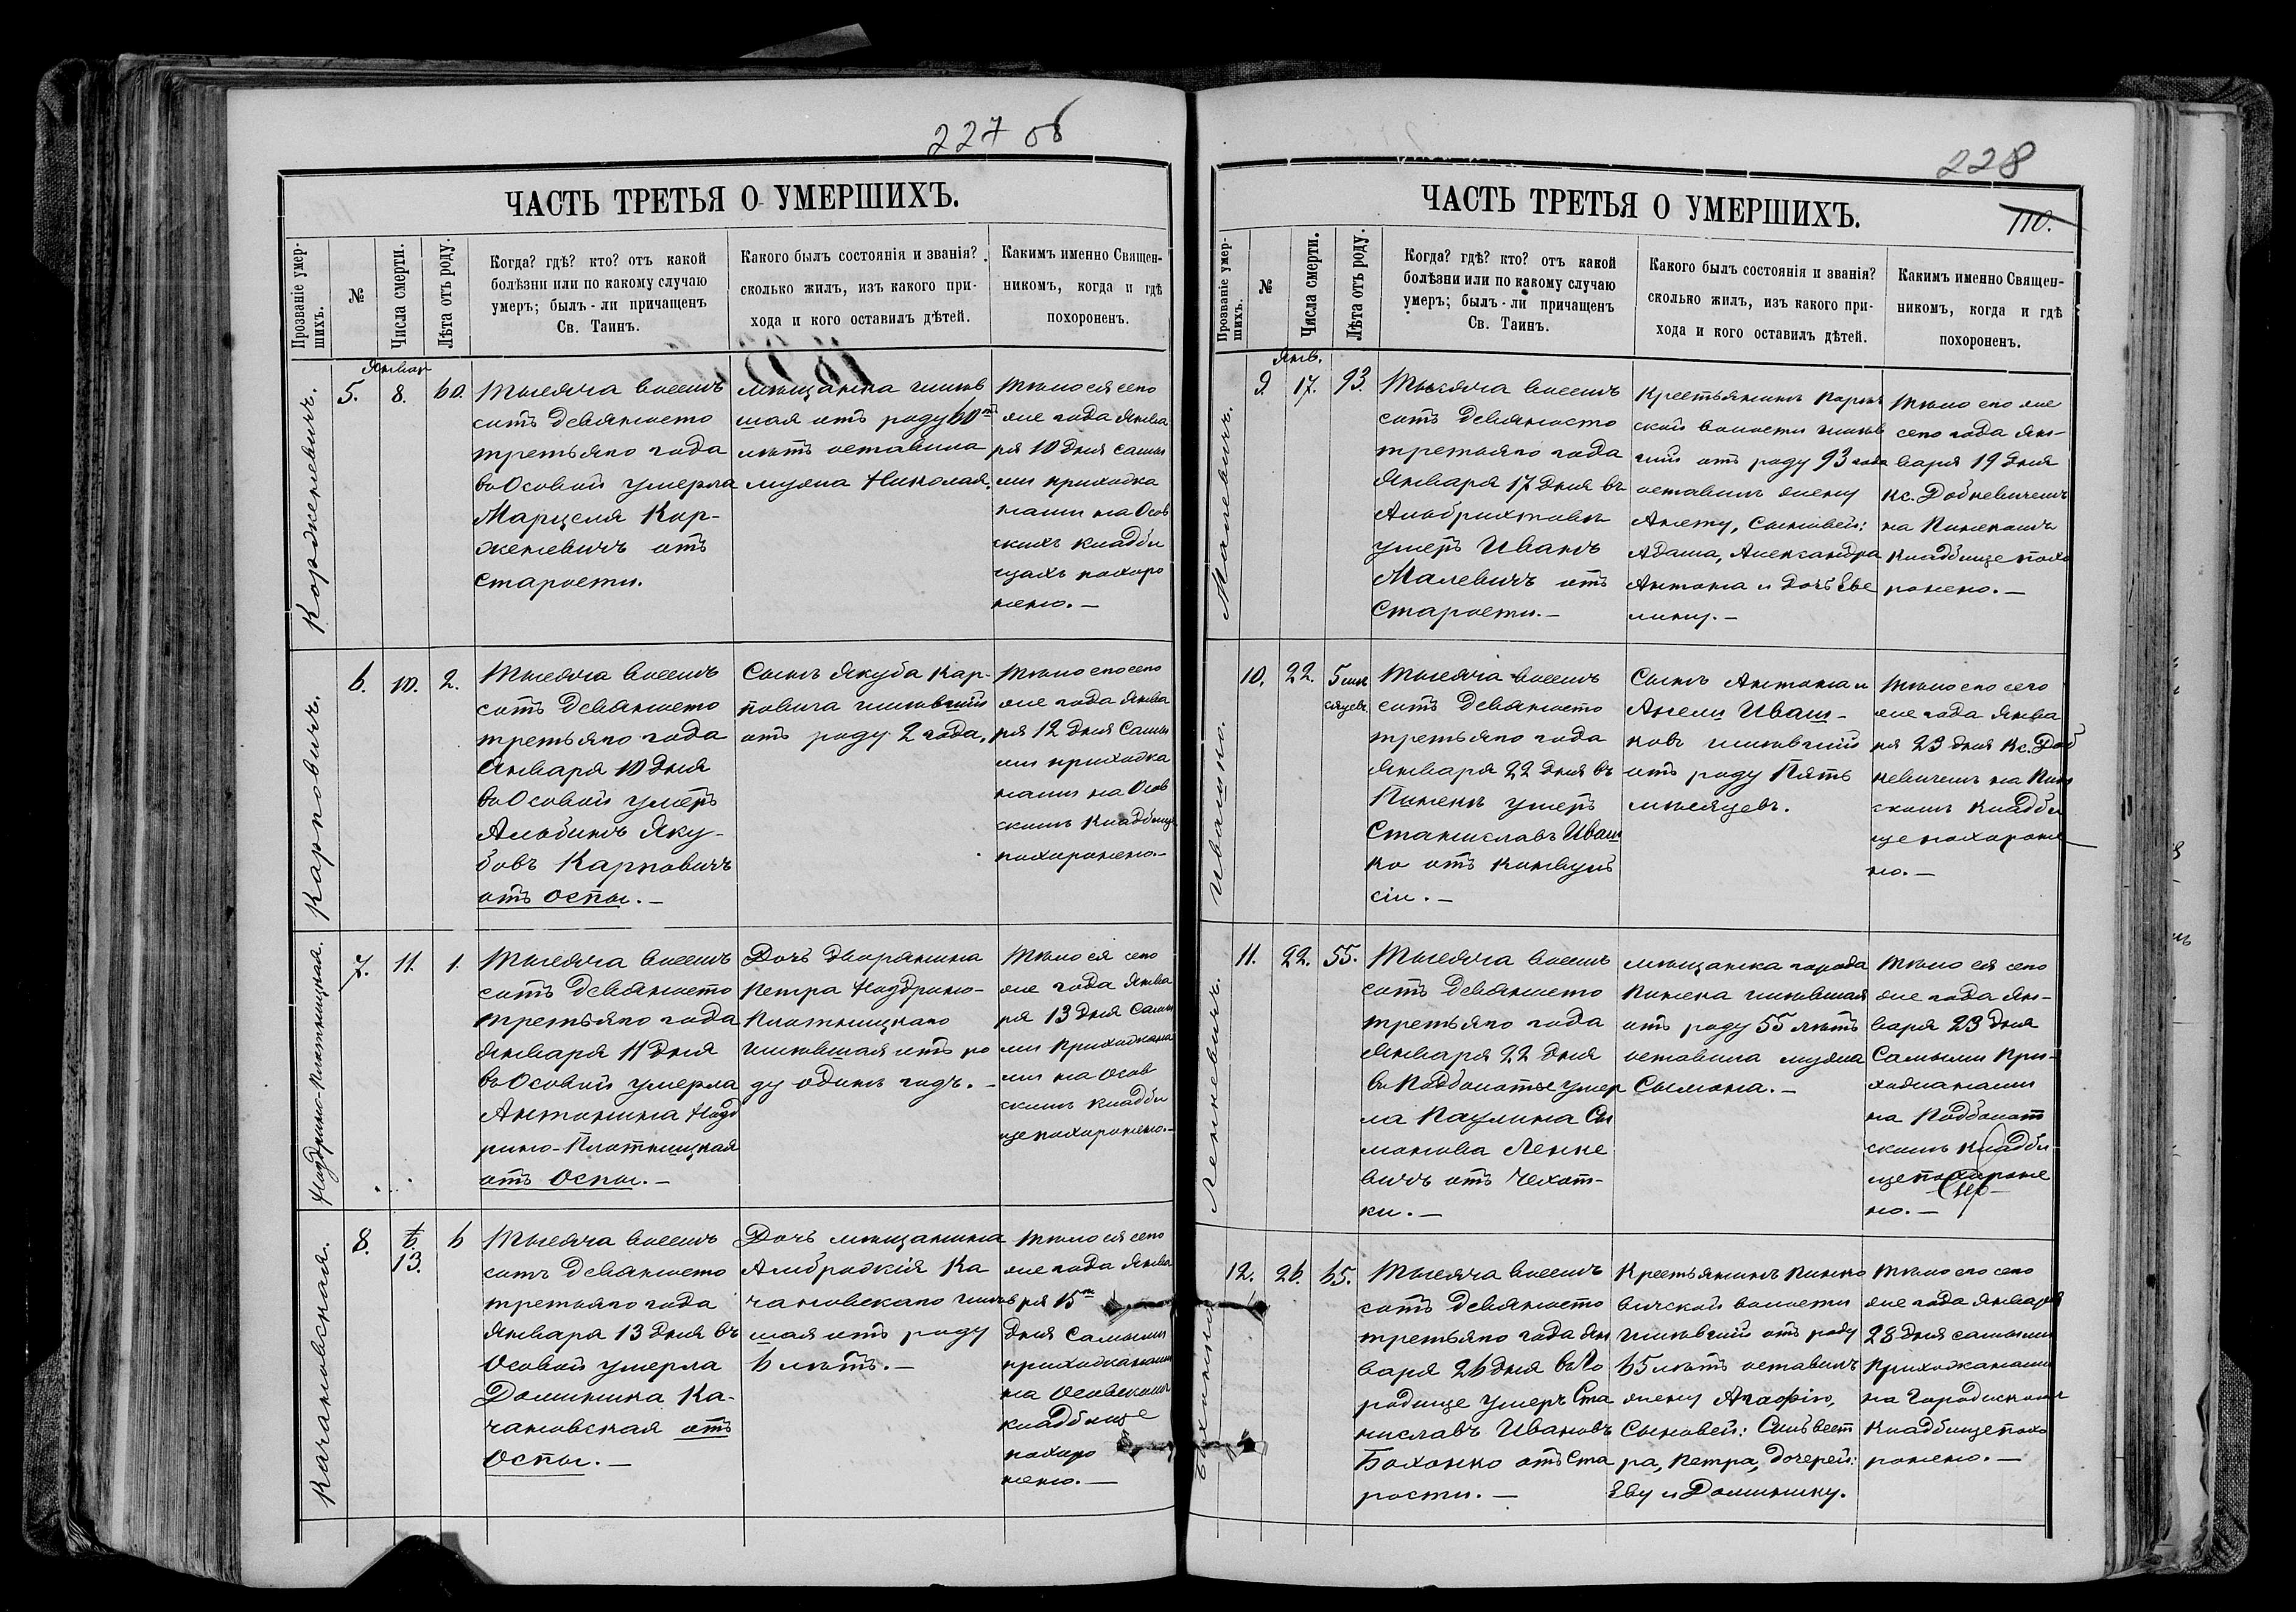 227 об
ЧАСТЬ ТРЕТЬЯ О УМЕРШИХЪ.
Прозваніе умер-
шихъ.
№
Числа смерти.
Лѣта отъ роду.
Когда? гдѣ? кто? отъ какой
болѣзни или по какому случаю
умеръ; былъ-ли причащенъ
Св. Таинъ.
Какого былъ состоянія и званія?
сколько жилъ, изъ какого при-
хода и кого оставилъ дѣтей.
Какимъ именно Священ-
никомъ, когда и гдѣ
похороненъ.
Корджсеневичъ.
Январ
5.
8.
60.
Тысяча восемь
сотъ девяносто
третьяго года
въ Осовой умерла
Марцеля Кор-
женевичъ отъ
старости.
мѣщанка жив
шая отъ роду 60ть
лѣтъ оставила
мужа Николая.
Тѣло ея сего
же года Янва
ря 10 дня самы
ми прихожа
нами на Осов
скихъ кладби
щахъ похоро
нено. —
Карповичъ.
6.
10.
2.
Тысяча восемь
сотъ девяносто
третьяго года
Января 10 дня
въ Осовой умеръ
Альбинъ Яку-
бовъ Карповичъ
отъ оспы. —
Сынъ Якуба Кар-
повича жившій
отъ роду 2 года.
Тѣло его сего
же года Янва
ря 12 дня самы
ми прихожа
нами на Осов
скимъ кладбище
похоронено. —
Ноздрино-Плотницкая.
7.
11.
1.
Тысяча восемь
сотъ девяносто
третьяго года
Января 11 дня
въ Осовой умерла
Антонина Нозд
рино-Плотницкая
отъ Оспы. —
Дочь дворянина
Петра Ноздрино-
Плотницкаго
жившая отъ ро
ду одинъ годъ. —
Тѣло ея сего
же года Янва
ря 13 дня самы
ми прихожана
ми на Осов
скимъ кладби
ще похоронено. —
Качановская.
8.
6.
13.
6
Тысяча восемь
сотъ девяносто
третьяго года
Января 13 дня въ
Осовой умерла
Доминика Ка-
чановская отъ
Оспы. —
Дочь мѣщанина
Амброжія Ка
чановскаго жив
шая отъ роду
6 лѣтъ. —
Тѣло ея сего
же года Янва
ря 15го
дня самыми
прихожанами
на Осовскомъ
кладбище
похоро
нено. —
228
110.
ЧАСТЬ ТРЕТЬЯ О УМЕРШИХЪ.
Прозваніе умер-
шихъ.
№
Числа смерти.
Лѣта отъ роду.
Когда? гдѣ? кто? отъ какой
болѣзни или по какому случаю
умеръ; былъ-ли причащенъ
Св. Таинъ.
Какого былъ состоянія и званія?
сколько жилъ, изъ какого при-
хода и кого оставилъ дѣтей.
Какимъ именно Священ-
никомъ, когда и гдѣ
похороненъ.
Малевичъ.
Янв.
9.
17.
93.
Тысяча восемь
сотъ девяносто
третьяго года
Января 17 дня въ
Альбрихтовѣ
умеръ Иванъ
Малевичъ отъ
старости. —
Крестьянинъ
ской волости жив
шій отъ роду 93 года
оставилъ жену
Анету, сыновей:
Адама, Александра
Антона и дочь Эве
лину. —
Тѣло его же
сего года Ян-
варя 19 дня
Кс. Добкевичемъ
на Пинскомъ
кладбище похо
ронено. —
Ивашко.
10.
22.
5 мѣ
сяцевъ
Тысяча восемь
сотъ девяносто
третьяго года
Января 22 дня въ
Пинскѣ умеръ
Станиславъ Иваш
ко отъ конвуль
сіи. —
Сынъ Антона и
Анели Иваш-
ковъ жившій
отъ роду пять
мѣсяцевъ.
Тѣло его сего
же года Янва
ря 23 дня Кс. Доб
кевичемъ на Пин
скимъ кладби
ще похороне
но. —
Ленкевичъ.
11.
22.
55.
Тысяча восемь
сотъ девяносто
третьяго года
Января 22 дня
въ Подболотье умер
ла Паулина Си
монова Ленке
вичъ отъ Чехот-
ки. —
мѣщанка города
Пинска жившая
отъ роду 55 лѣтъ
оставила мужа
Сымона. —
Тѣло ея сего
же года Ян-
варя 23 дня
самыми при-
хожанами
на Подболот
скимъ кладби
ще похороне
но. —
Бохонко
12.
26.
65.
Тысяча восемь
сотъ девяносто
третьяго года Ян
варя 26 дня въ Го
родище умеръ Ста
ниславъ Ивановъ
Бохонко отъ ста
рости. —
Крестьянинъ Пинко
вичской волости
жившій отъ роду
65 лѣтъ оставилъ
жену Агафію,
Сыновей: Сильвест
ра, Петра, дочерей:
Эву и Доминику.
Тѣло его сего
же года Января
28 дня самыми
прихожанами
на Городискомъ
кладбище похо
ронено. —